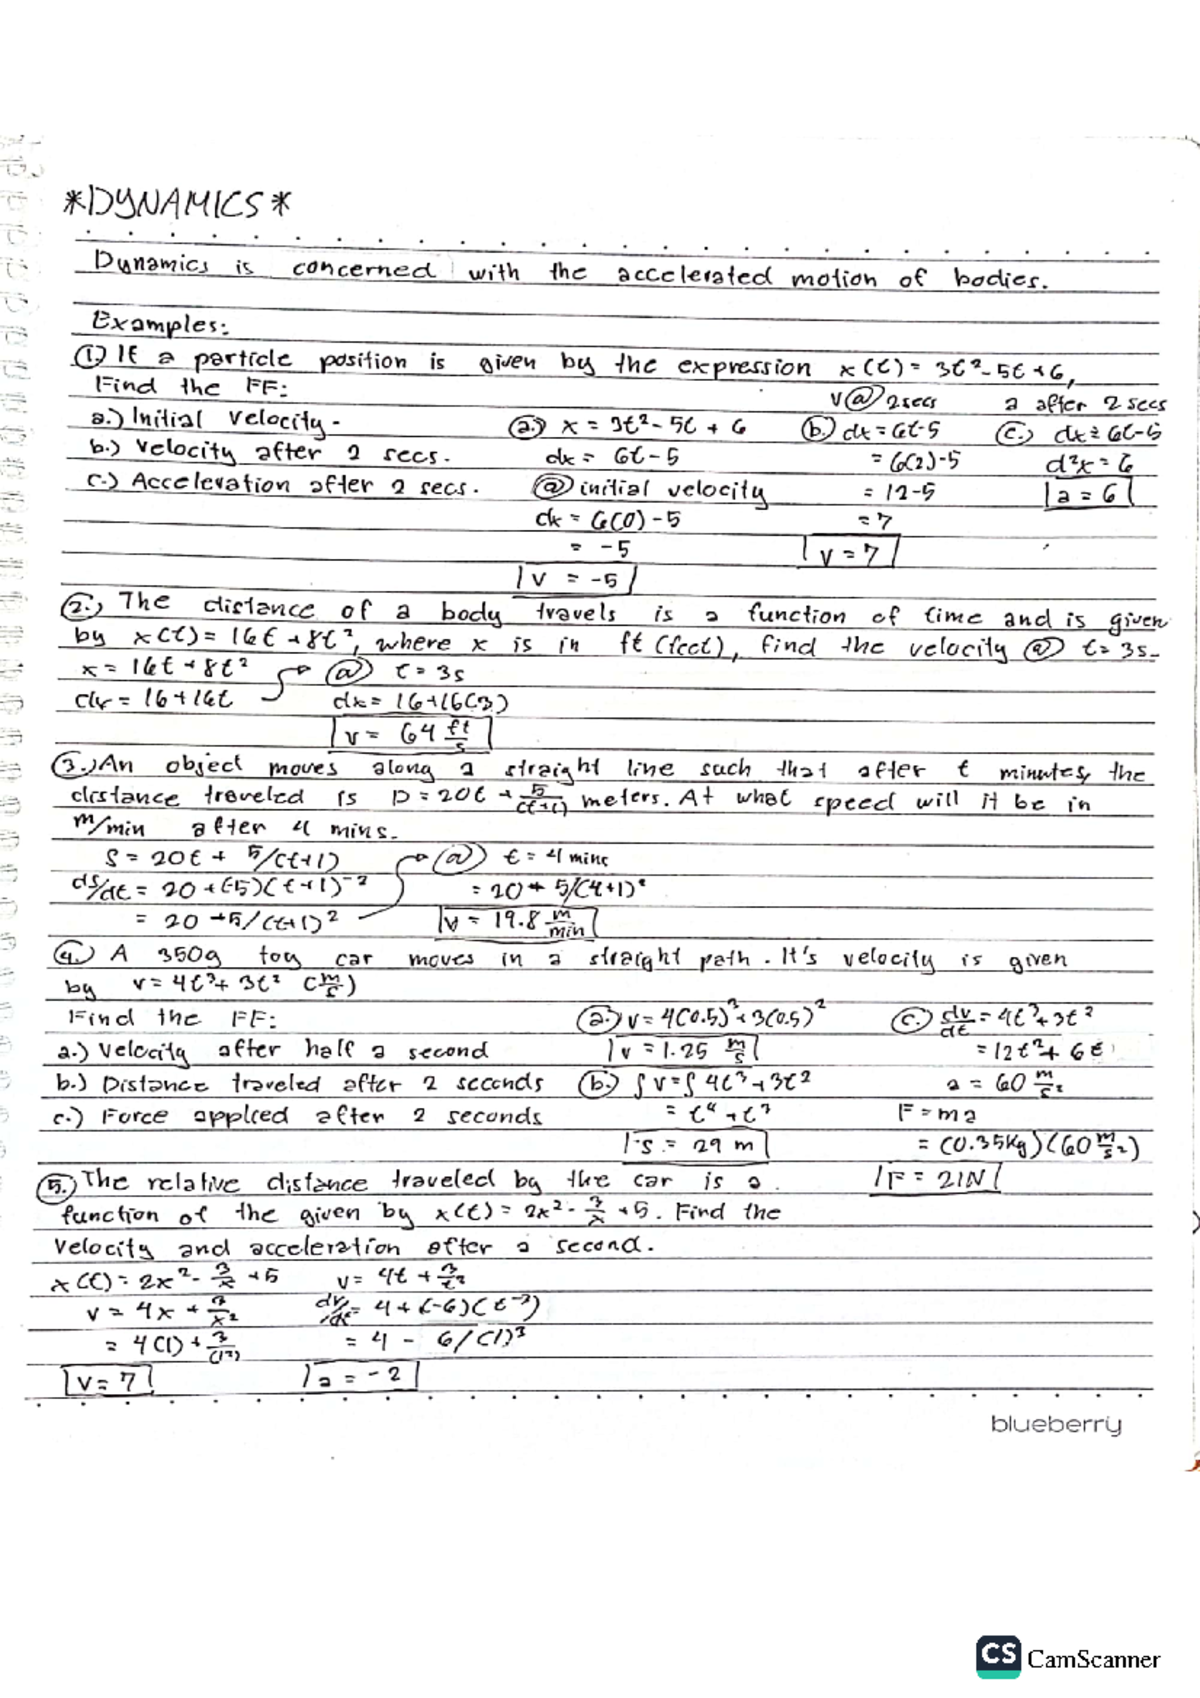 *DYNAMICS*
Dynamics is concerned with the accelerated motion of bodies.
Examples:
①) If a particle position is given by the expression x(t) = 3t² - 5t + 6,
Find the FF:
a.) Initial velocity -
b.) Velocity after 2 secs.
c.) Acceleration after 2 secs.
(a.) x = 3t² - 5t + 6
dx = 6t - 5
@ initial velocity
dx = 6(0) - 5
= -5
v = -5
v @ 2secs
(b.) dx = 6t-5
= 6(2)-5
= 12-5
= 7
v = 7
a after 2 secs
(c.) dx = 6t-5
d²x = 6
a = 6
(2.) The distance of a body travels is a function of time and is given
by x(t) = 16t + 8t², where x is in ft (feet), find the velocity @ t = 3s.
x = 16t + 8t²
dx = 16 + 16t
@ t = 3s
dx = 16+16(3)
v = 64 ft/s
(3.) An object moves along a straight line such that after t minutes, the
distance traveled is D = 20t + 5/(t+1) meters. At what speed will it be in
m/min after 4 mins.
S = 20t + 5/(t+1)
ds/dt = 20 + (-5)(t+1)⁻²
= 20 + 5/(t+1)²
@ t = 4 mins
= 20 + 5/(4+1)²
v = 19.8 m/min
(4.) A 350g toy car moves in a straight path. It's velocity is given
by v = 4t³ + 3t² (m/s)
Find the FF:
a.) Velocity after half a second
b.) Distance traveled after 2 seconds
c.) Force applied after 2 seconds
(a.) v = 4(0.5)³ + 3(0.5)²
v = 1.25 m/s
(b.) ∫v = ∫4t³ + 3t²
= t⁴ + t³
s = 29 m
(c.) dv/dt = 4t³ + 3t²
= 12t² + 6t
a = 60 m/s²
F = ma
= (0.35kg)(60 m/s²)
F = 21N
(5.) The relative distance traveled by the car is a
function of the given by x(t) = 2x² - 3/x + 5. Find the
velocity and acceleration after a second.
x(t) = 2x² - 3/x + 5
v = 4x + 3/x²
= 4(1) + 3/(1²)
v = 7
v = 4t + 3/t²
dv/dt = 4 + (-6)(t⁻³)
= 4 - 6/(1)³
a = -2
blueberry
CS CamScanner